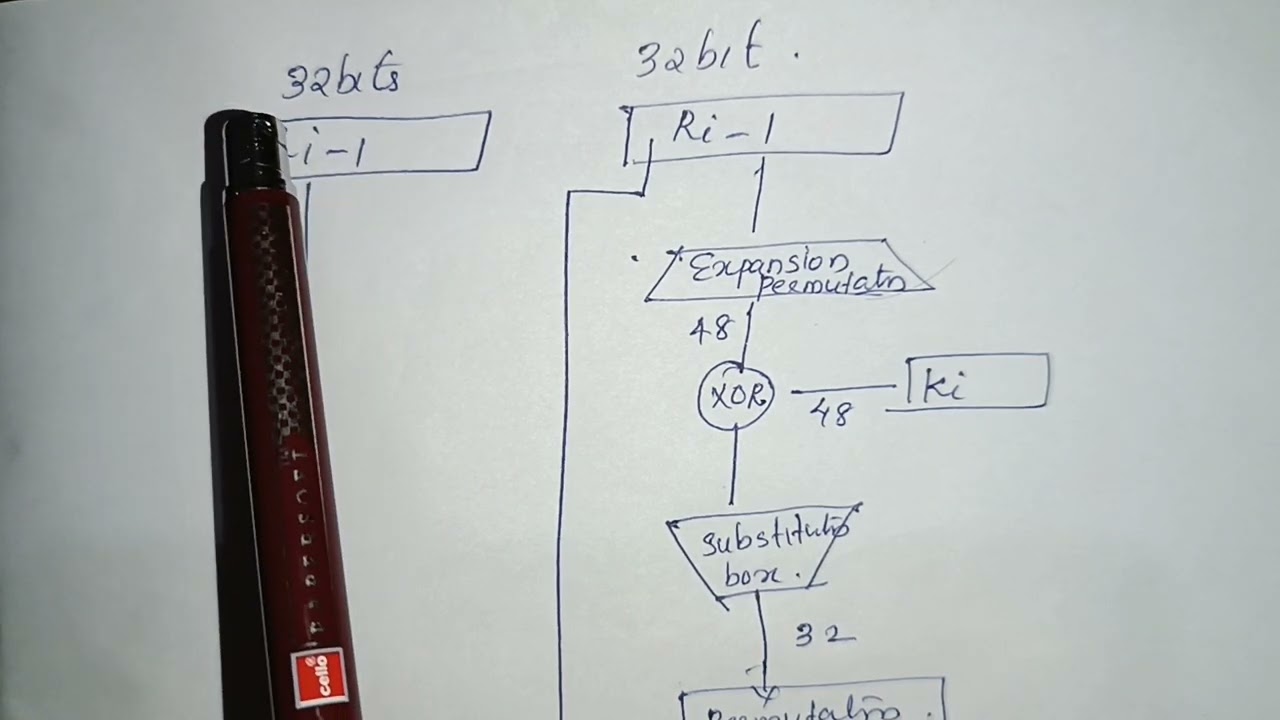 32bits
32bit.
i-1
Ri-1
Expansion
Permutatn
48
XOR
48
Ki
Substitutio
box.
32
Permutatio.
cello